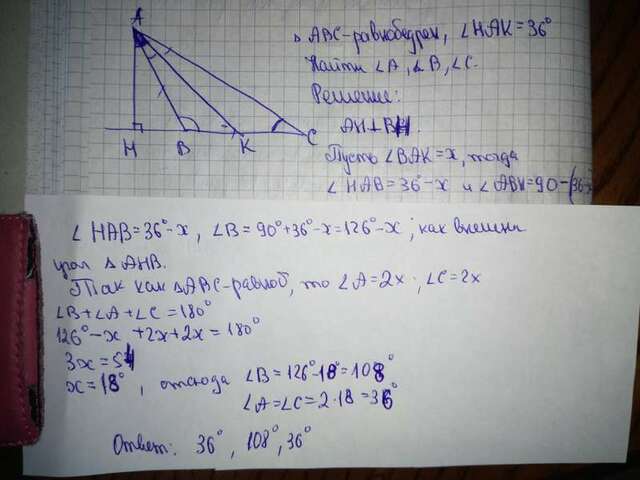 A
H B K C
Δ ABC-равнобедрен, ∠HAK=36°
Найти ∠A, ∠B, ∠C.
Решение:
AH⊥BH.
Пусть ∠BAK=x, тогда
∠HAB=36°-x и ∠ABH=90-(36-x
∠HAB=36°-x, ∠B=90°+36°-x=126°-x, как внешн
угол Δ AHB.
Так как ΔABC-равноб, то ∠A=2x, ∠C=2x
∠B+∠A+∠C=180°
126°-x+2x+2x=180°
3x=54
x=18°, отсюда ∠B=126°-18°=108°
∠A=∠C=2·18=36°
Ответ: 36°, 108°, 36°